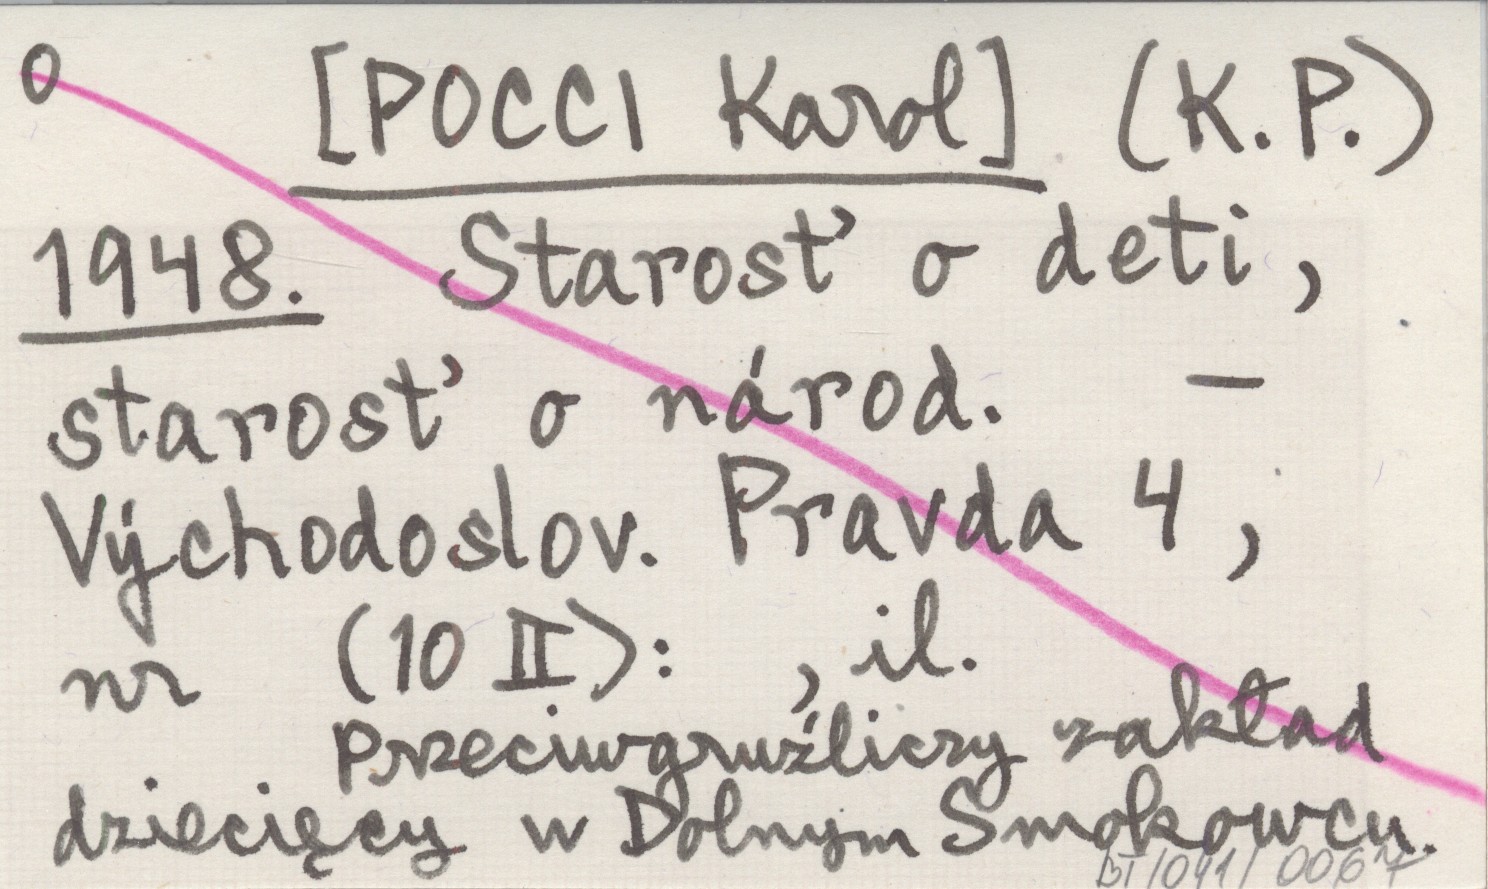 o [POCCI Karol] (K.P.)
1948. Starosť o deti,
starosť o národ. –
Východoslov. Pravda 4,
nr (10 II): , il.
Przeciwgruźliczy zakład
dziecięcy w Dolnym Smokowcu.
BT/041/0067